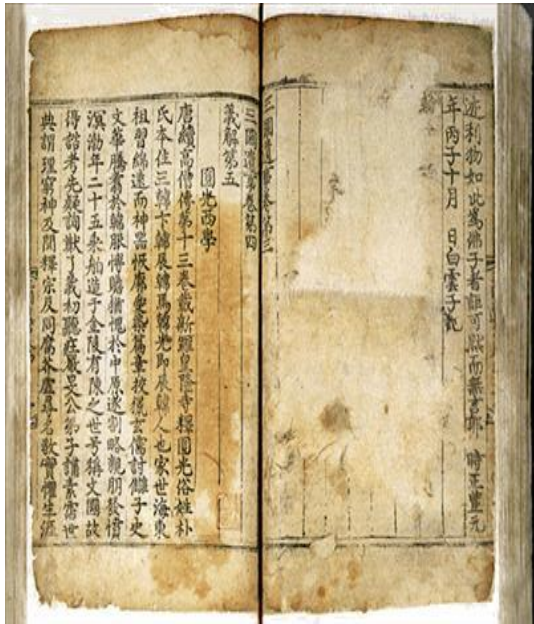 迹利物如此為佛子者誰可猒而無言耶 時至豊元
年丙子十月 日白雲子記
三國遺事卷第三
三國遺事卷第四
義解第五
圓光西學
唐續高僧傳第十三卷載新羅皇隆寺釋圓光俗姓朴
氏本住三韓卞韓辰韓馬韓光即辰韓人也家世海東
祖習綿遠而神器恢廓愛染篇章挍獵玄儒討讎子史
文華騰翥於韓服博贍猶愧於中原遂割略親朋發憤
溟渤年二十五乘舶造于金陵有陳之世号稱文國故
得諮考先疑詢猷了義初聽莊嚴旻公弟子講素霑世
典謂理窮神及聞釋宗反同腐芥虛尋名教實懼生涯